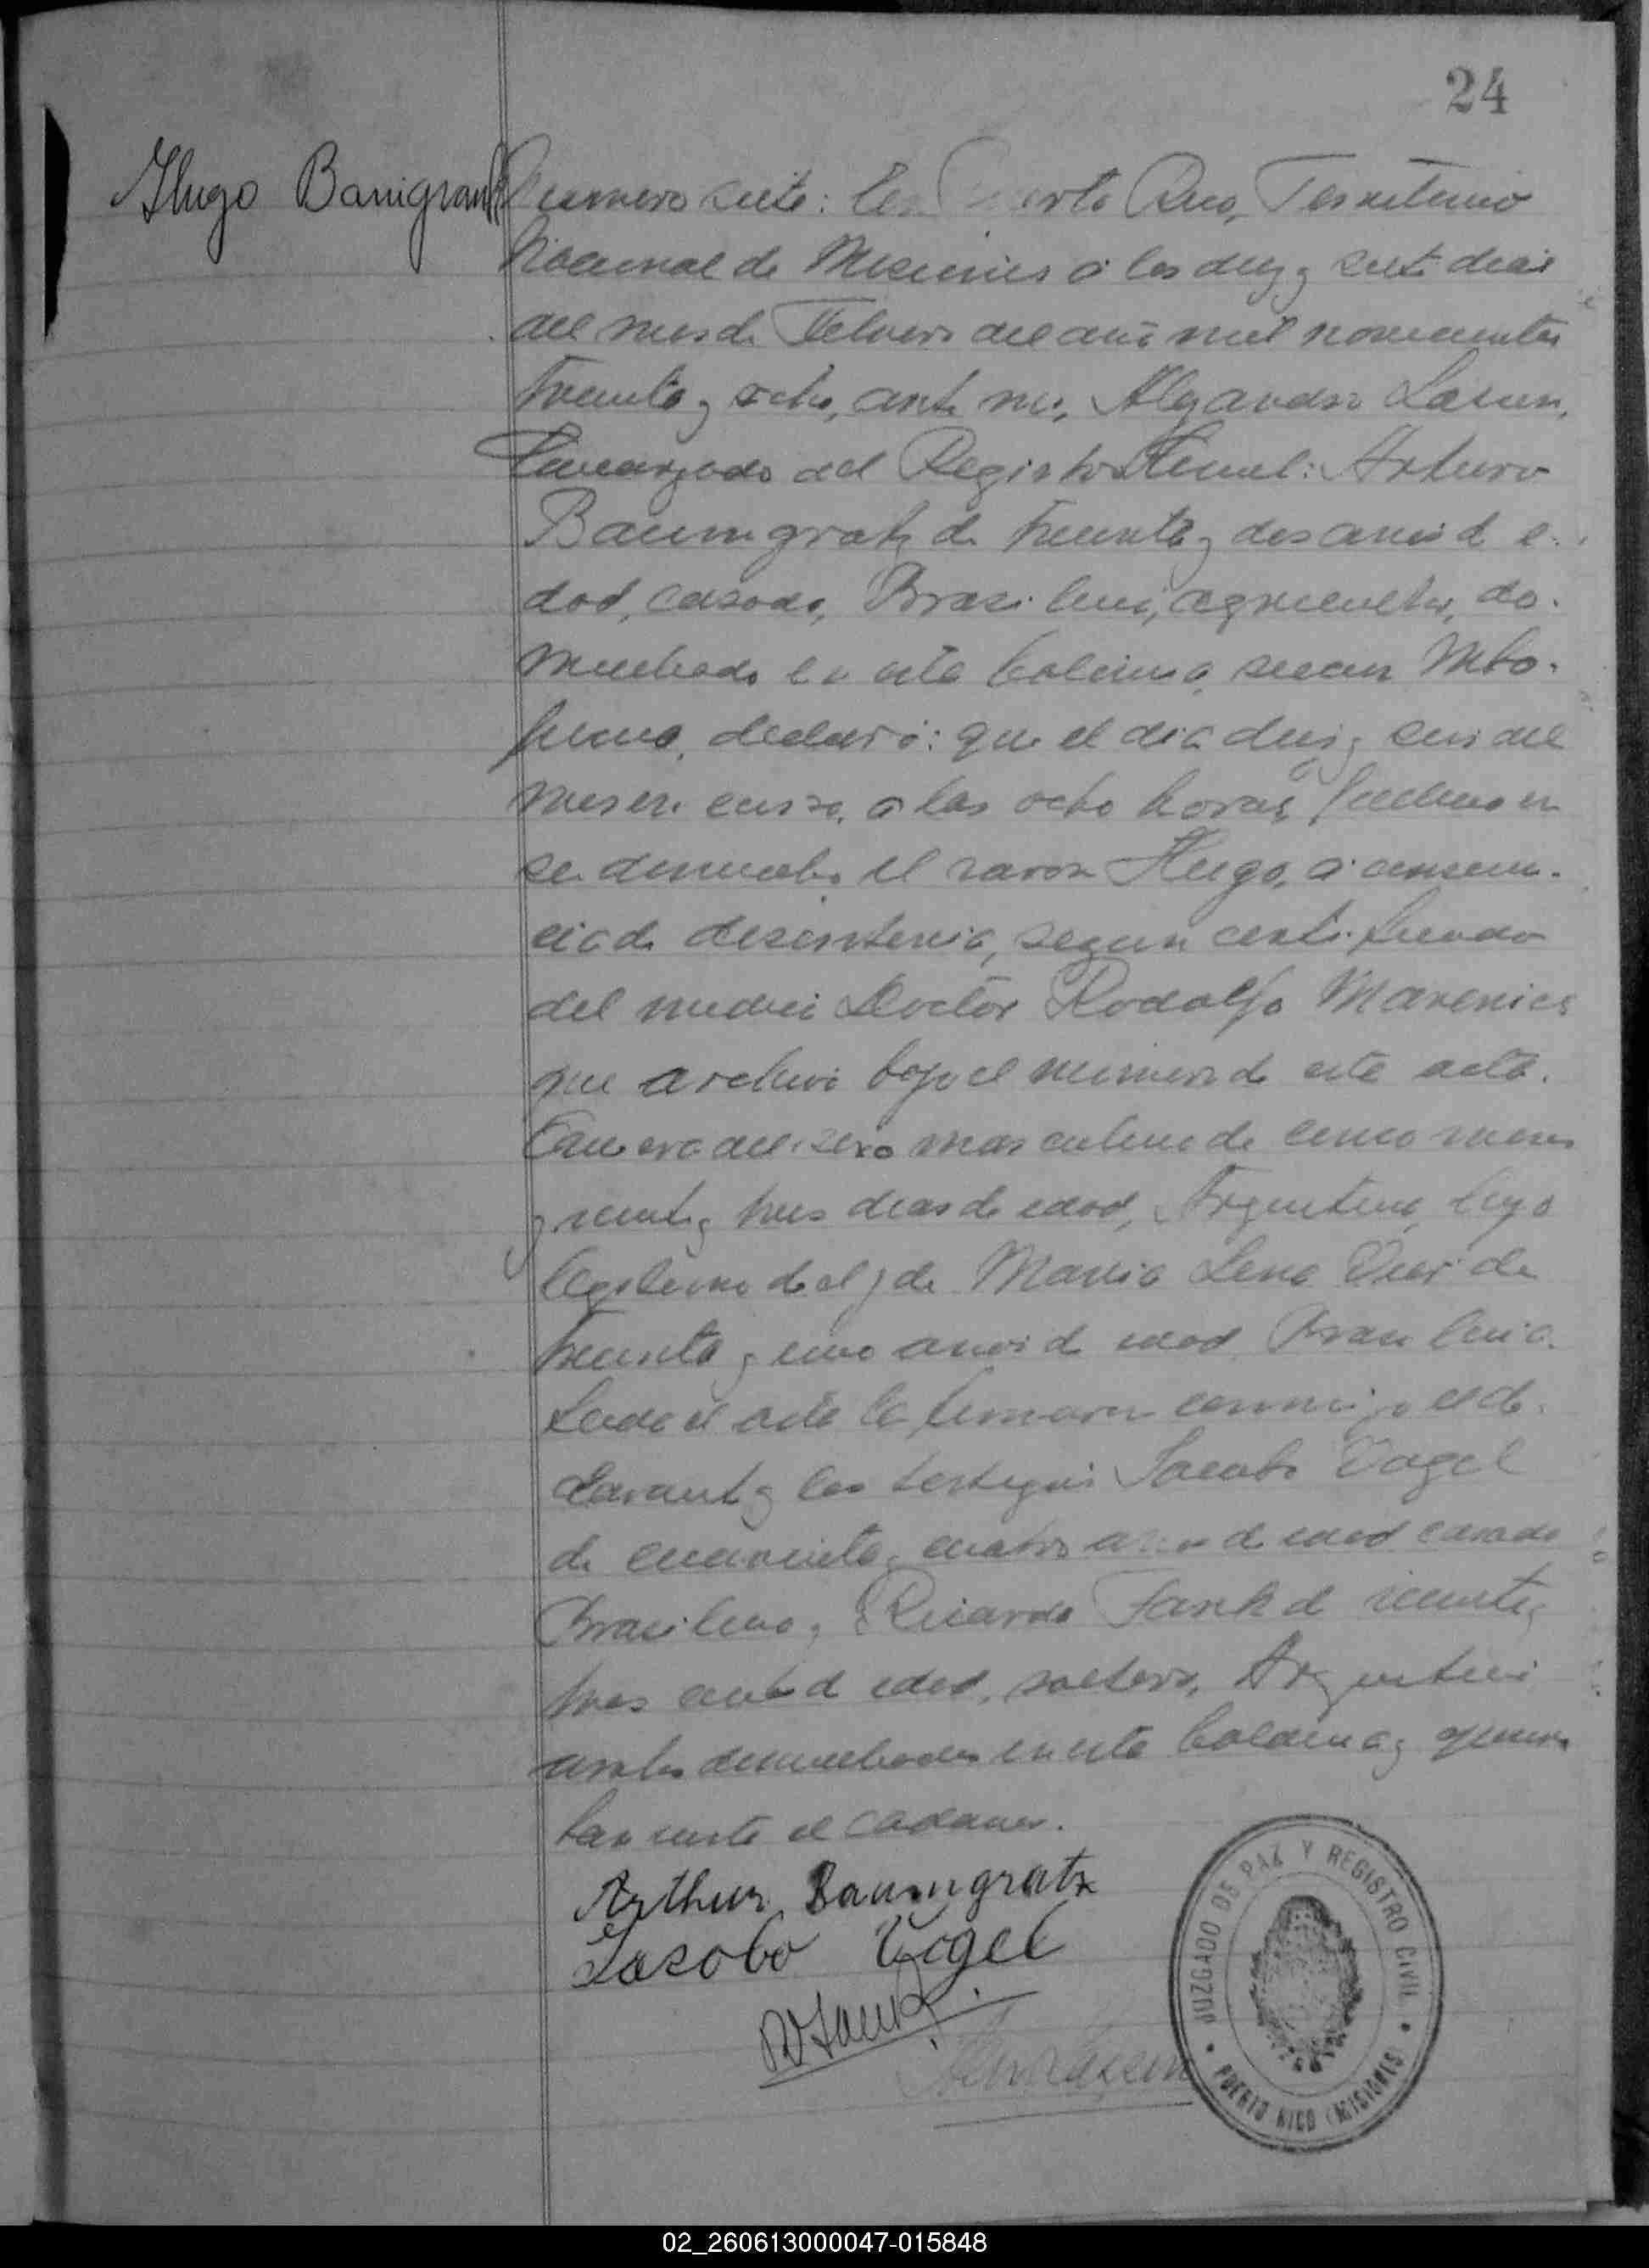 24
Hugo Baumgratz
Numero siete: En Puerto Rico, Territorio
Nacional de Misiones a los diez y siete dias
del mes de Febrero del año mil novecientos
treinta y ocho, ante mi, Alejandro
Encargado del Registro Civil: Arturo
Baumgratz de treinta y dos años de e-
dad, casado, Brasileño, agricultor, do-
miciliado en esta Colonia,
declaró: que el dia diez y seis del
mes en curso, a las ocho horas, fallecio en
su domicilio el varon Hugo, a consecuen-
cia de desinteria, segun certificado
del medico Doctor Rodolfo
que archivo bajo el numero de esta acta.
Que era del sexo masculino de cinco meses
y veinte y tres dias de edad, Argentino, hijo
legitimo de el y de Maria Lena de
treinta y uno años de edad Brasileña.
Leida el acta la firmaron conmigo el de-
clarante y los testigos Jacobo Vogel
de cuarenta y cuatro años de edad casado
Brasileño y Ricardo Fank de veinte y
tres años de edad, soltero, Argentino
ambos domiciliados en esta Colonia y quienes
han visto el cadaver.
Arthur Baumgratz
Jacobo Vogel
JUZGADO DE PAZ Y REGISTRO CIVIL
PUERTO RICO (MISIONES)
02_260613000047-015848